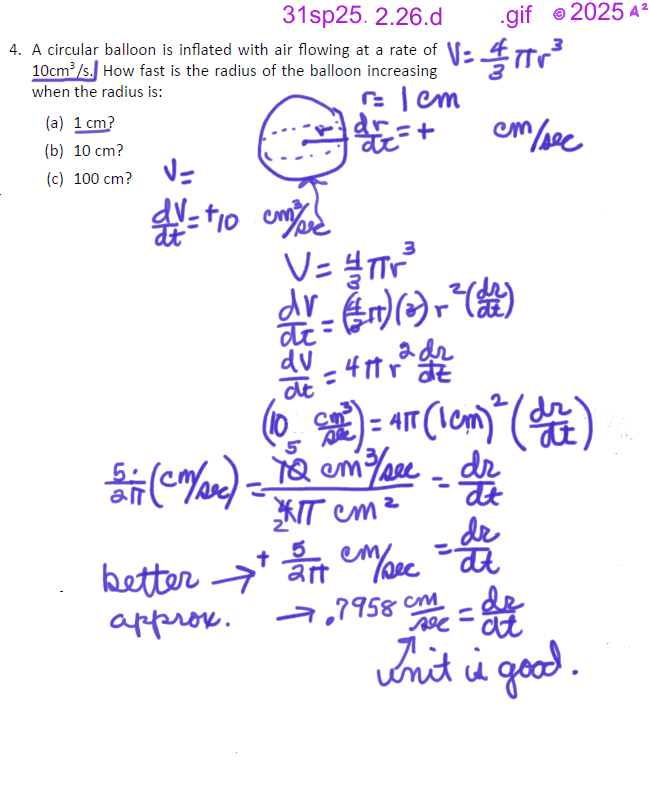 31sp25. 2.26.d .gif © 2025 A²
4. A circular balloon is inflated with air flowing at a rate of
10cm³/s. How fast is the radius of the balloon increasing
when the radius is:
V = 4/3 πr³
(a) 1 cm?
(b) 10 cm?
(c) 100 cm?
r = 1 cm
r
dr/dt = + cm/sec
V =
dV/dt = +10 cm³/sec
V = 4/3 πr³
dV/dt = (4/3 π)(3) r² (dr/dt)
dV/dt = 4π r² dr/dt
(10 cm³/sec) = 4π (1cm)² (dr/dt)
5/2π (cm/sec) = 10 5 cm³/sec / 4 2 π cm² = dr/dt
better → + 5/2π cm/sec = dr/dt
approx. → .7958 cm/sec = dr/dt
↑ unit is good.